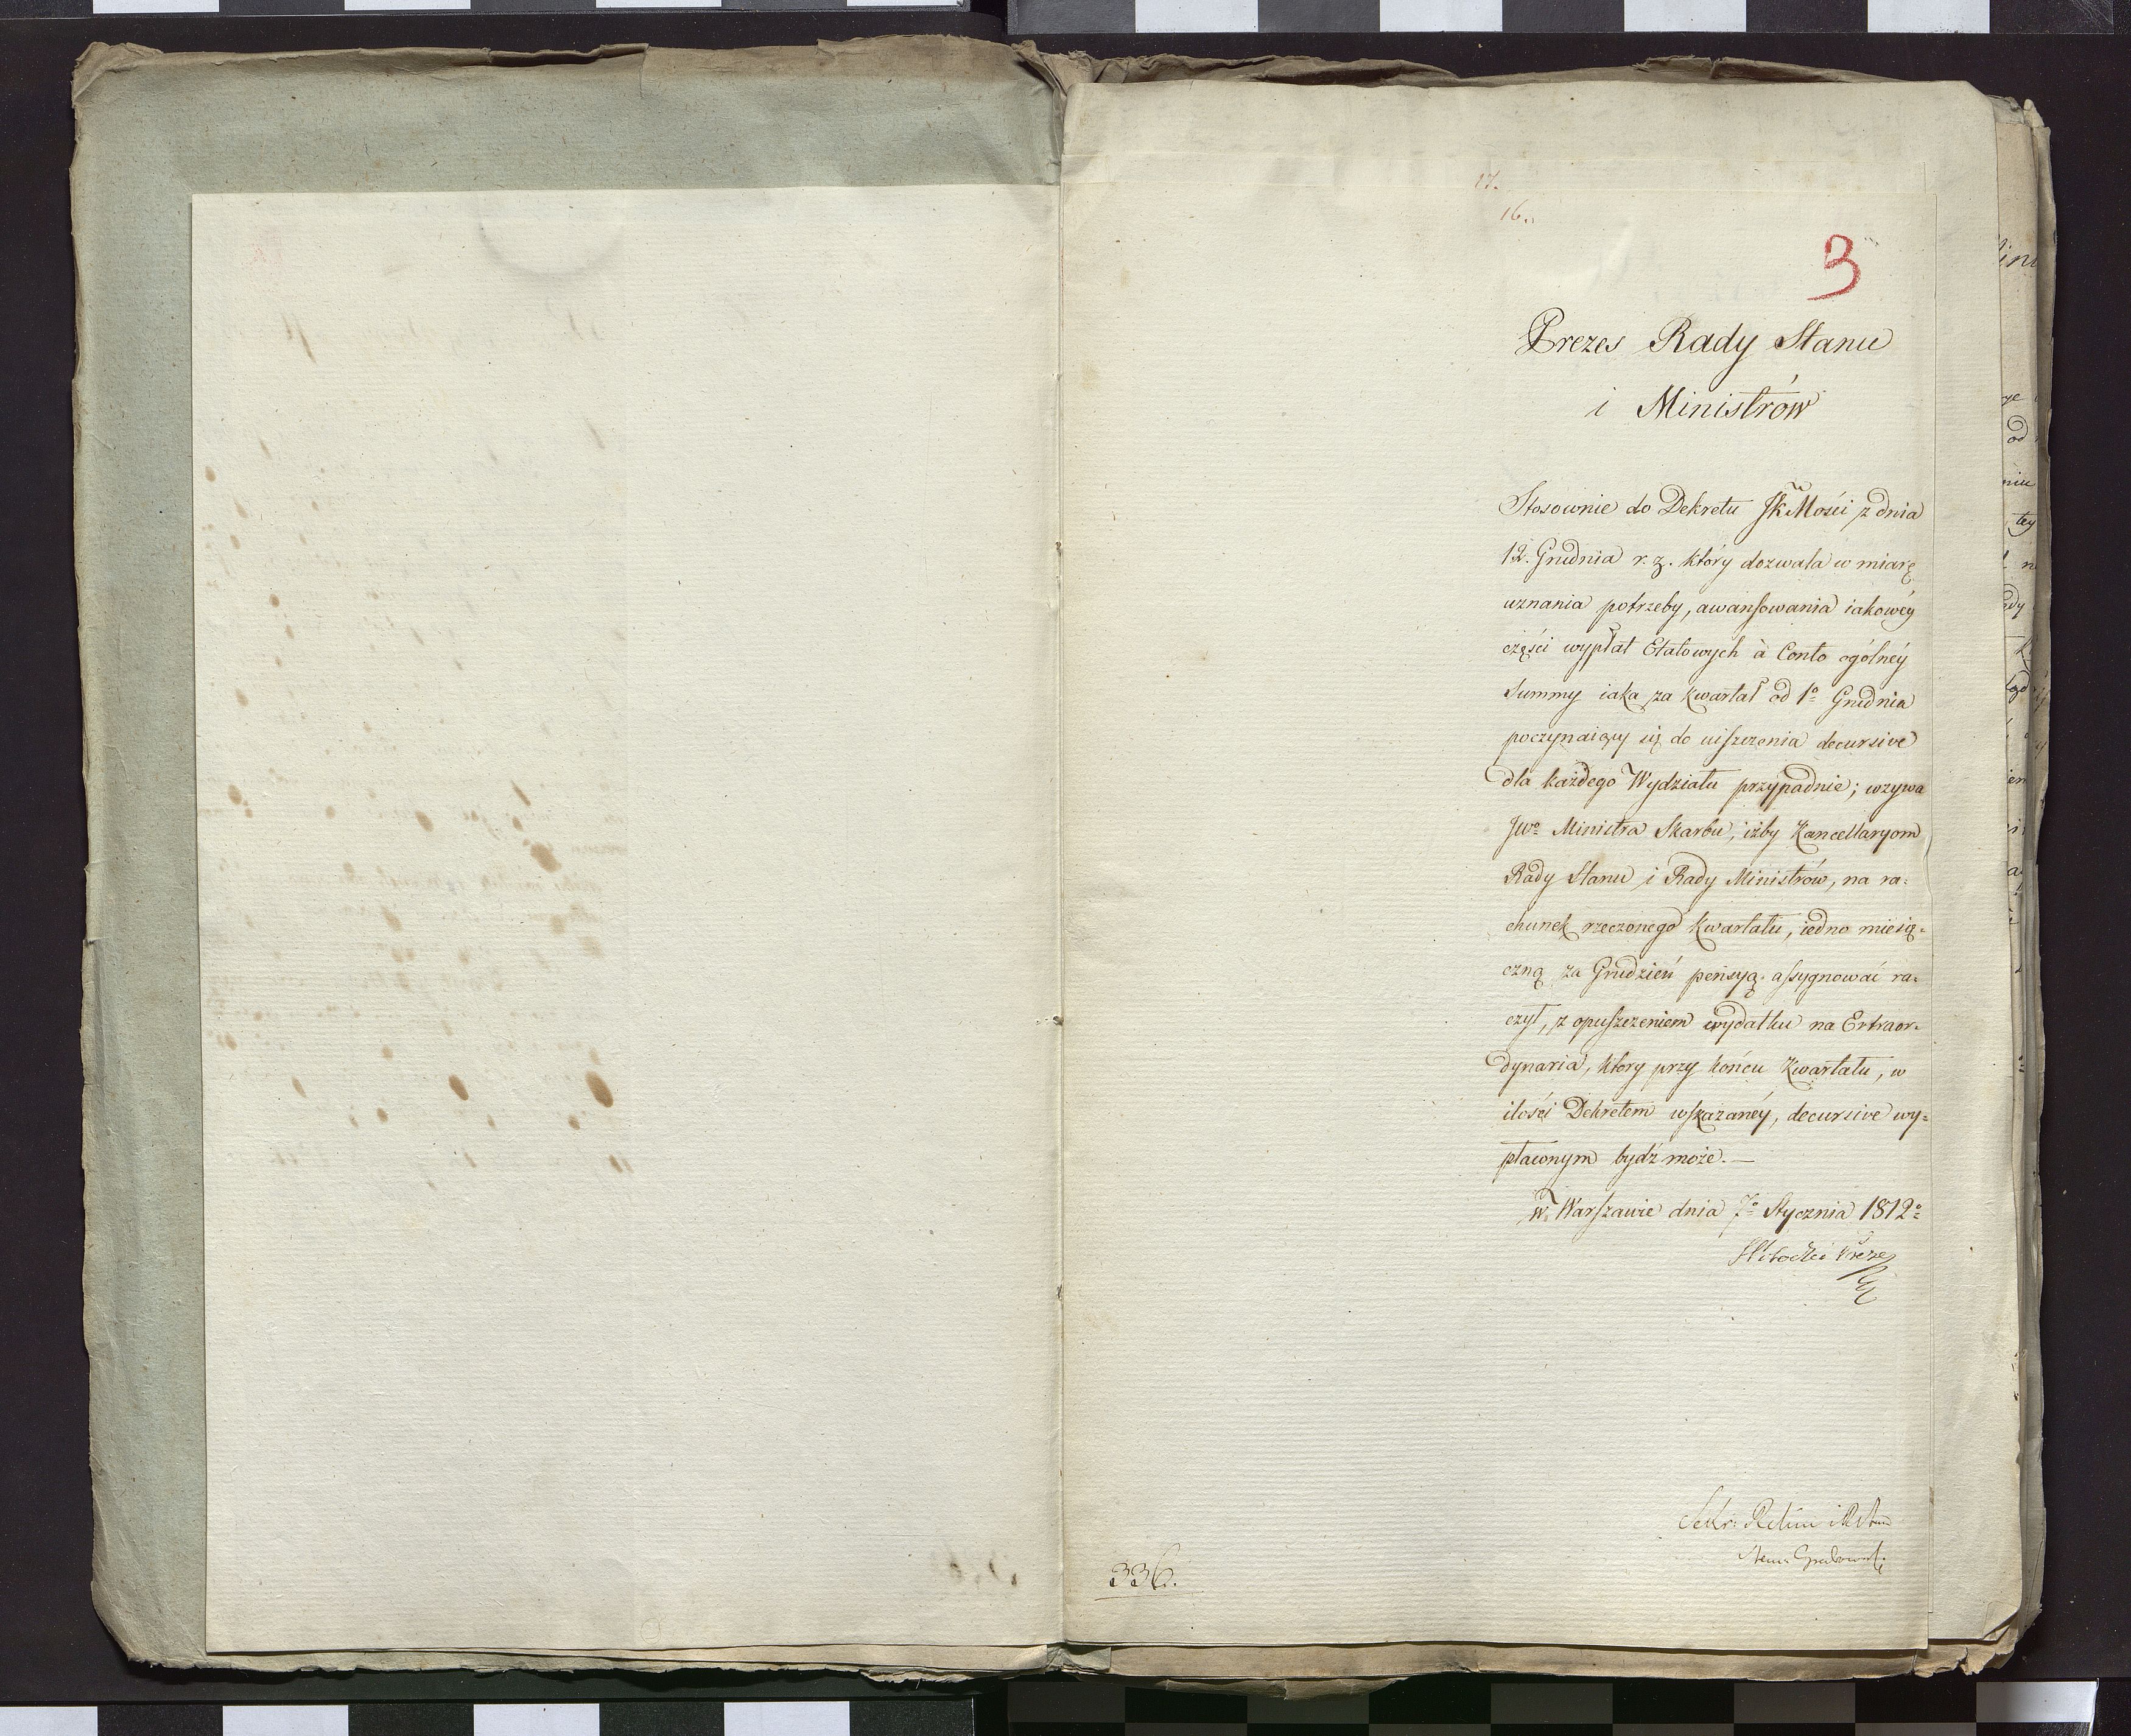 17.
16.
3
Prezes Rady Stanu
i Ministrów
Stosownie do Dekretu JKMości z dnia
12. Grudnia r. z. który dozwala w miarę
uznania potrzeby, awansowania iakowéy
części wypłat Etatowych à Conto ogólnéy
Summy iaka za kwartał od 1º Grudnia
poczynaiący się do uiszczenia decursive
dla każdego Wydziału przypadnie; wzywa
JWº Ministra Skarbu, iżby Kancellaryom
Rady Stanu i Rady Ministrów, na ra-
chunek rzeczonego kwartału, iedno miesię-
czną za Grudzień pensyą assygnować ra-
czył, z opuszczeniem wydatku na Extraor-
dynaria, ktory przy końcu Kwartału, w
ilości Dekretem wskazanéy, decursive wy-
płaconym bydź może. —
w Warszawie dnia 7º Stycznia 1812º
Potocki Prezes
Sekr: R Min i R Stanu
Grabowski
336.